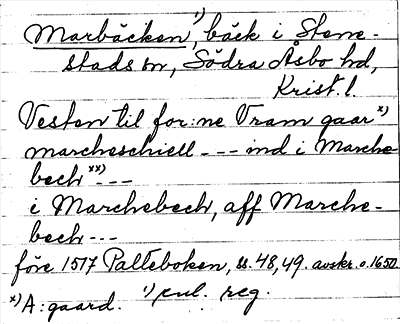 Marbäcken¹⁾, bäck i Stene-
stads sn, Södra Åsbo hd,
Krist. l.
Vesten til for:ne Vram gaar ˣ⁾
marcheschiell --- ind i Marche
bech ˣˣ⁾ ---
i Marchebech, aff Marche-
bech ---
före 1517 Palteboken, ss. 48, 49. avskr. o. 1650.
ˣ⁾ A: gaard. ¹⁾ enl. reg.